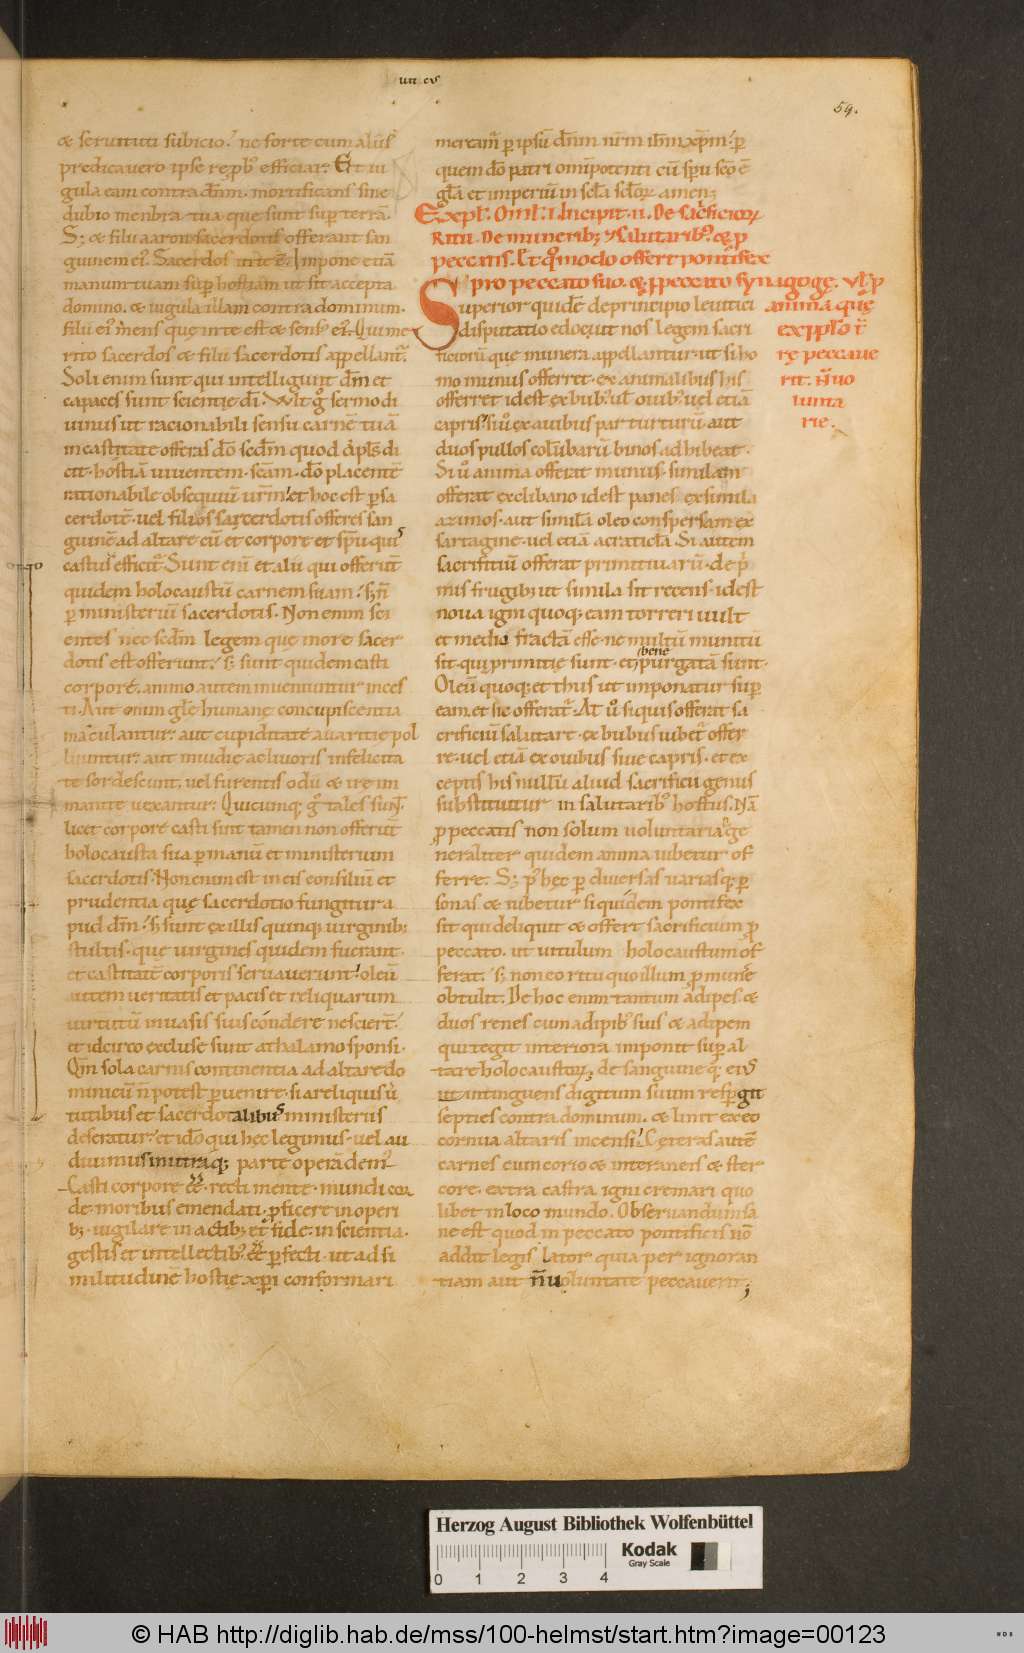 un eis
59.
& seruituti subicio. ne forte cum aliis
predicauero ipse repbꝰ efficiar. Et iu
gula eam contra dnm. mortificans sine
dubio menbra tua que sunt sup̱ terrā.
S; & filii aaron sacerdotis offerant san
guinem eiꝰ. Sacerdos in te ē. Impone etiā
manum tuam sup̱ hostiam ut sit accepta
domino. & iugula illam contra dominum.
filii eiꝰ mens quę in te est & sensꝰ eiꝰ. Qui me
rito sacerdos & filii sacerdotis appellant̄.
Soli enim sunt qui intelligunt dm̄ et
capaces sunt scientię di. Vult g̊ sermo di
uinus ut racionabili sensu carnē tuā
in castitate offeras dō scdm̄ quod apls di
cit. hostiā uiuentem. scām. dō placentē
rationabile obsequiū urm̄. et hoc est p̱ sa
cerdotē. uel filios sacerdotis offeres san
guinē ad altare cū et corpore et spū quis
castus efficit̄. Sunt eni et alii qui offerunt
quidem holocaustū carnem suam. s; n̄
p̱ ministeriū sacerdotis. Non enim sci
entes nec scdm̄ legem quę in ore sacer
dotis est offerunt. s; sunt quidem casti
corpore. animo autem inueniuntur inces
ti. Aut enim glę humanę concupiscentia
maculantur. aut cupiditate auaritię pol
luuntur. aut inuidię ac liuoris infelicita
te sordescunt. uel furentis odii & irę im
manite uexantur. Quicumq; g̊ tales sunt.
licet corpore casti sint tamen non offerūt
holocausta sua p̱ manū et ministerium
sacerdotis. Non enim est in eis consiliū et
prudentia quę sacerdotio fungitur a
pud dm̄. s; sunt ex illis quinq; uirginib;
stultis. quę uirgines quidem fuerant.
et castitatē corporis seruauerunt. oleū
autem ueritatis et pacis et reliquarum
uirtutū in uasis suis condere nescier̄t.
et idcirco excluse sunt a thalamo sponsi.
Qm̄ sola carnis continentia ad altare do
minicū n̄ potest p̱uenire. si a reliquis uir
tutibus et sacerdotalibus ministeriis
deseratur. et idō qui hęc legimus. uel au
diuimus in utraq; parte operā demꝰ
Casti corpore ēē. recti mente. mundi cor
de. moribus emendati. p̱ficere in operi
b;. uigilare in actib; et fide. in scientia.
gestis et intellectibꝰ ēē p̱fecti. ut ad si
militudinē hostię xp̄i conformari
meream̄ p̱ ipsū dn̄m nr̄m ihm̄ xp̄m. p̱
quem dō patri omīpotenti cū spū scō ē
glā et imperiū in scła scłor̄. amen;
Expł. Omł. I. Incipit. II. De sacrificior̄
Ritu. De munerib; & salutaribꝰ. & p̱
peccatis. Et qͦmodo offert pontifex
pro peccato suo. & p̱ peccato synagogę. ul p̱
anima quę
ex ppło t̄
rę peccaue
rit. n̄ uo
lunta
rie.
Superior quidē de principio leuitici
disputatio edocuit nos legem sacri
ficiorū que munera appellantur. ut si ho
mo munus offerret. ex animalibus his
offerret idest ex bubꝰ uł ouibꝰ uel etiā
capris. siu̇ ex auibus par turturū aut
duos pullos colūbarū binos adhibeat.
Si ů anima offerat munus. similam
offerat ex clibano idest panes ex simila
azimos. aut similā oleo conspersam ex
sartagine. uel etiā a craticla. Si autem
sacrificiū offerat primitiuarū. de p̓
mis frugib; ut simila sit recens. idest
noua igni quoq; eam torreri uult
et mediō fractā esse. ne multū munitū
sit. qui primitię sunt. et bene purgatā sunt.
Oleū quoq; et thus ut imponatur sup̱
eam. et sic offerat̄. At ů si quis offerat sa
crificiū salutare. ex bubus iubet̄ offer
re. uel etiā ex ouibus siue capris. et ex
ceptis his nullū aliud sacrificii genus
substituitur in salutaribꝰ hostiis. Nā
p̱ peccatis non solum uoluntaria ge
neraliter quidem anima iubetur of
ferre. S; p̓ hęc p̱ diuersas uariasq; p̱
sonas & iubetur si quidem pontifex
sit qui deliquit & offert sacrificium p̱
peccato. ut uitulum holocaustum of
ferat. s; non eo ritu quo illum p̱ munꝰe
obtulit. De hoc enim tantum adipes &
duos renes cum adipibꝰ suis & adipem
qui tegit interiora imponit sup̱ al
tare holocaustor̄. de sanguine q̄. eiꝰ
ut intinguens digitum suum resp̱git
septies contra dominum. & linit ex eo
cornua altaris incensi. Cęteras autē
carnes cum corio & interaneis & ster
core. extra castra igni cremari quo
libet in loco mundo. Obseruandum sa
ne est quod in peccato pontificis nō
addit legis lator quia per ignoran
tiam aut n̄ uoluntate peccauerit;
Herzog August Bibliothek Wolfenbüttel
Kodak
Gray Scale
0 1 2 3 4
© HAB http://diglib.hab.de/mss/100-helmst/start.htm?image=00123